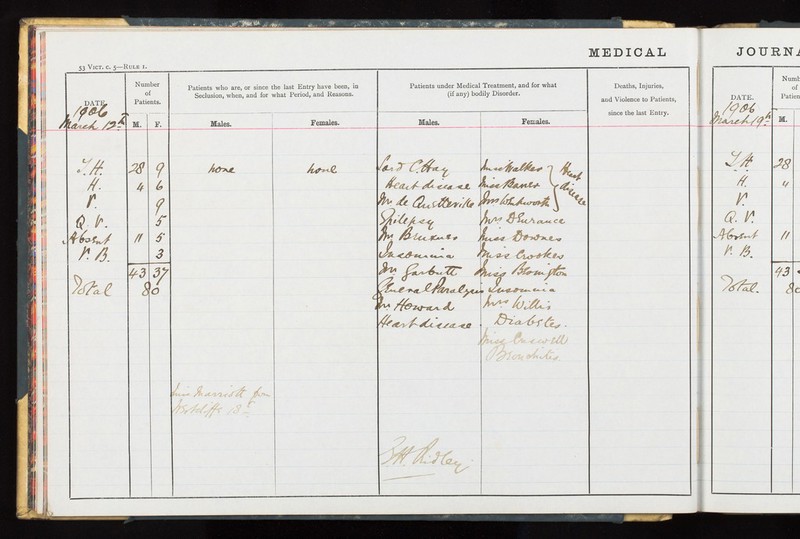 MEDICAL
53 VICT. C. 5—RULE 1.
DATE.
Number of Patients.
Patients who are, or since the last Entry have been, in Seclusion, when, and for what Period, and Reasons.
Patients under Medical Treatment, and for what (if any) bodily Disorder.
Deaths, Injuries, and Violence to Patients, since the last Entry.
1906
March 12th
M. F.
Males. Females.
Males. Females.
T.H. 28 9 none none Lord C. Hay Miss Walker
H. 4 6 Heart disease Miss Baner Heart disease
V. 9 Mr de Mrs Whitworth
Q. V. 5 Epilepsy Mrs
Absent 11 5 Mr Miss Downes
V. B. 3 Insomnia Miss Crookes
43 37 Mr Garbutt Miss
Total 80 General Paralysis Insomnia
Mr Howard Mrs Willis
Heart disease. Diabetes.
Miss
Bronchitis
Miss Marriott from
13th
Ridley
JOURNA
DATE.
Numb of Patien
1906
March 19th
M.
T.H. 28
H. 4
V.
Q. V.
Absent 11
V. B.
43
Total. 80